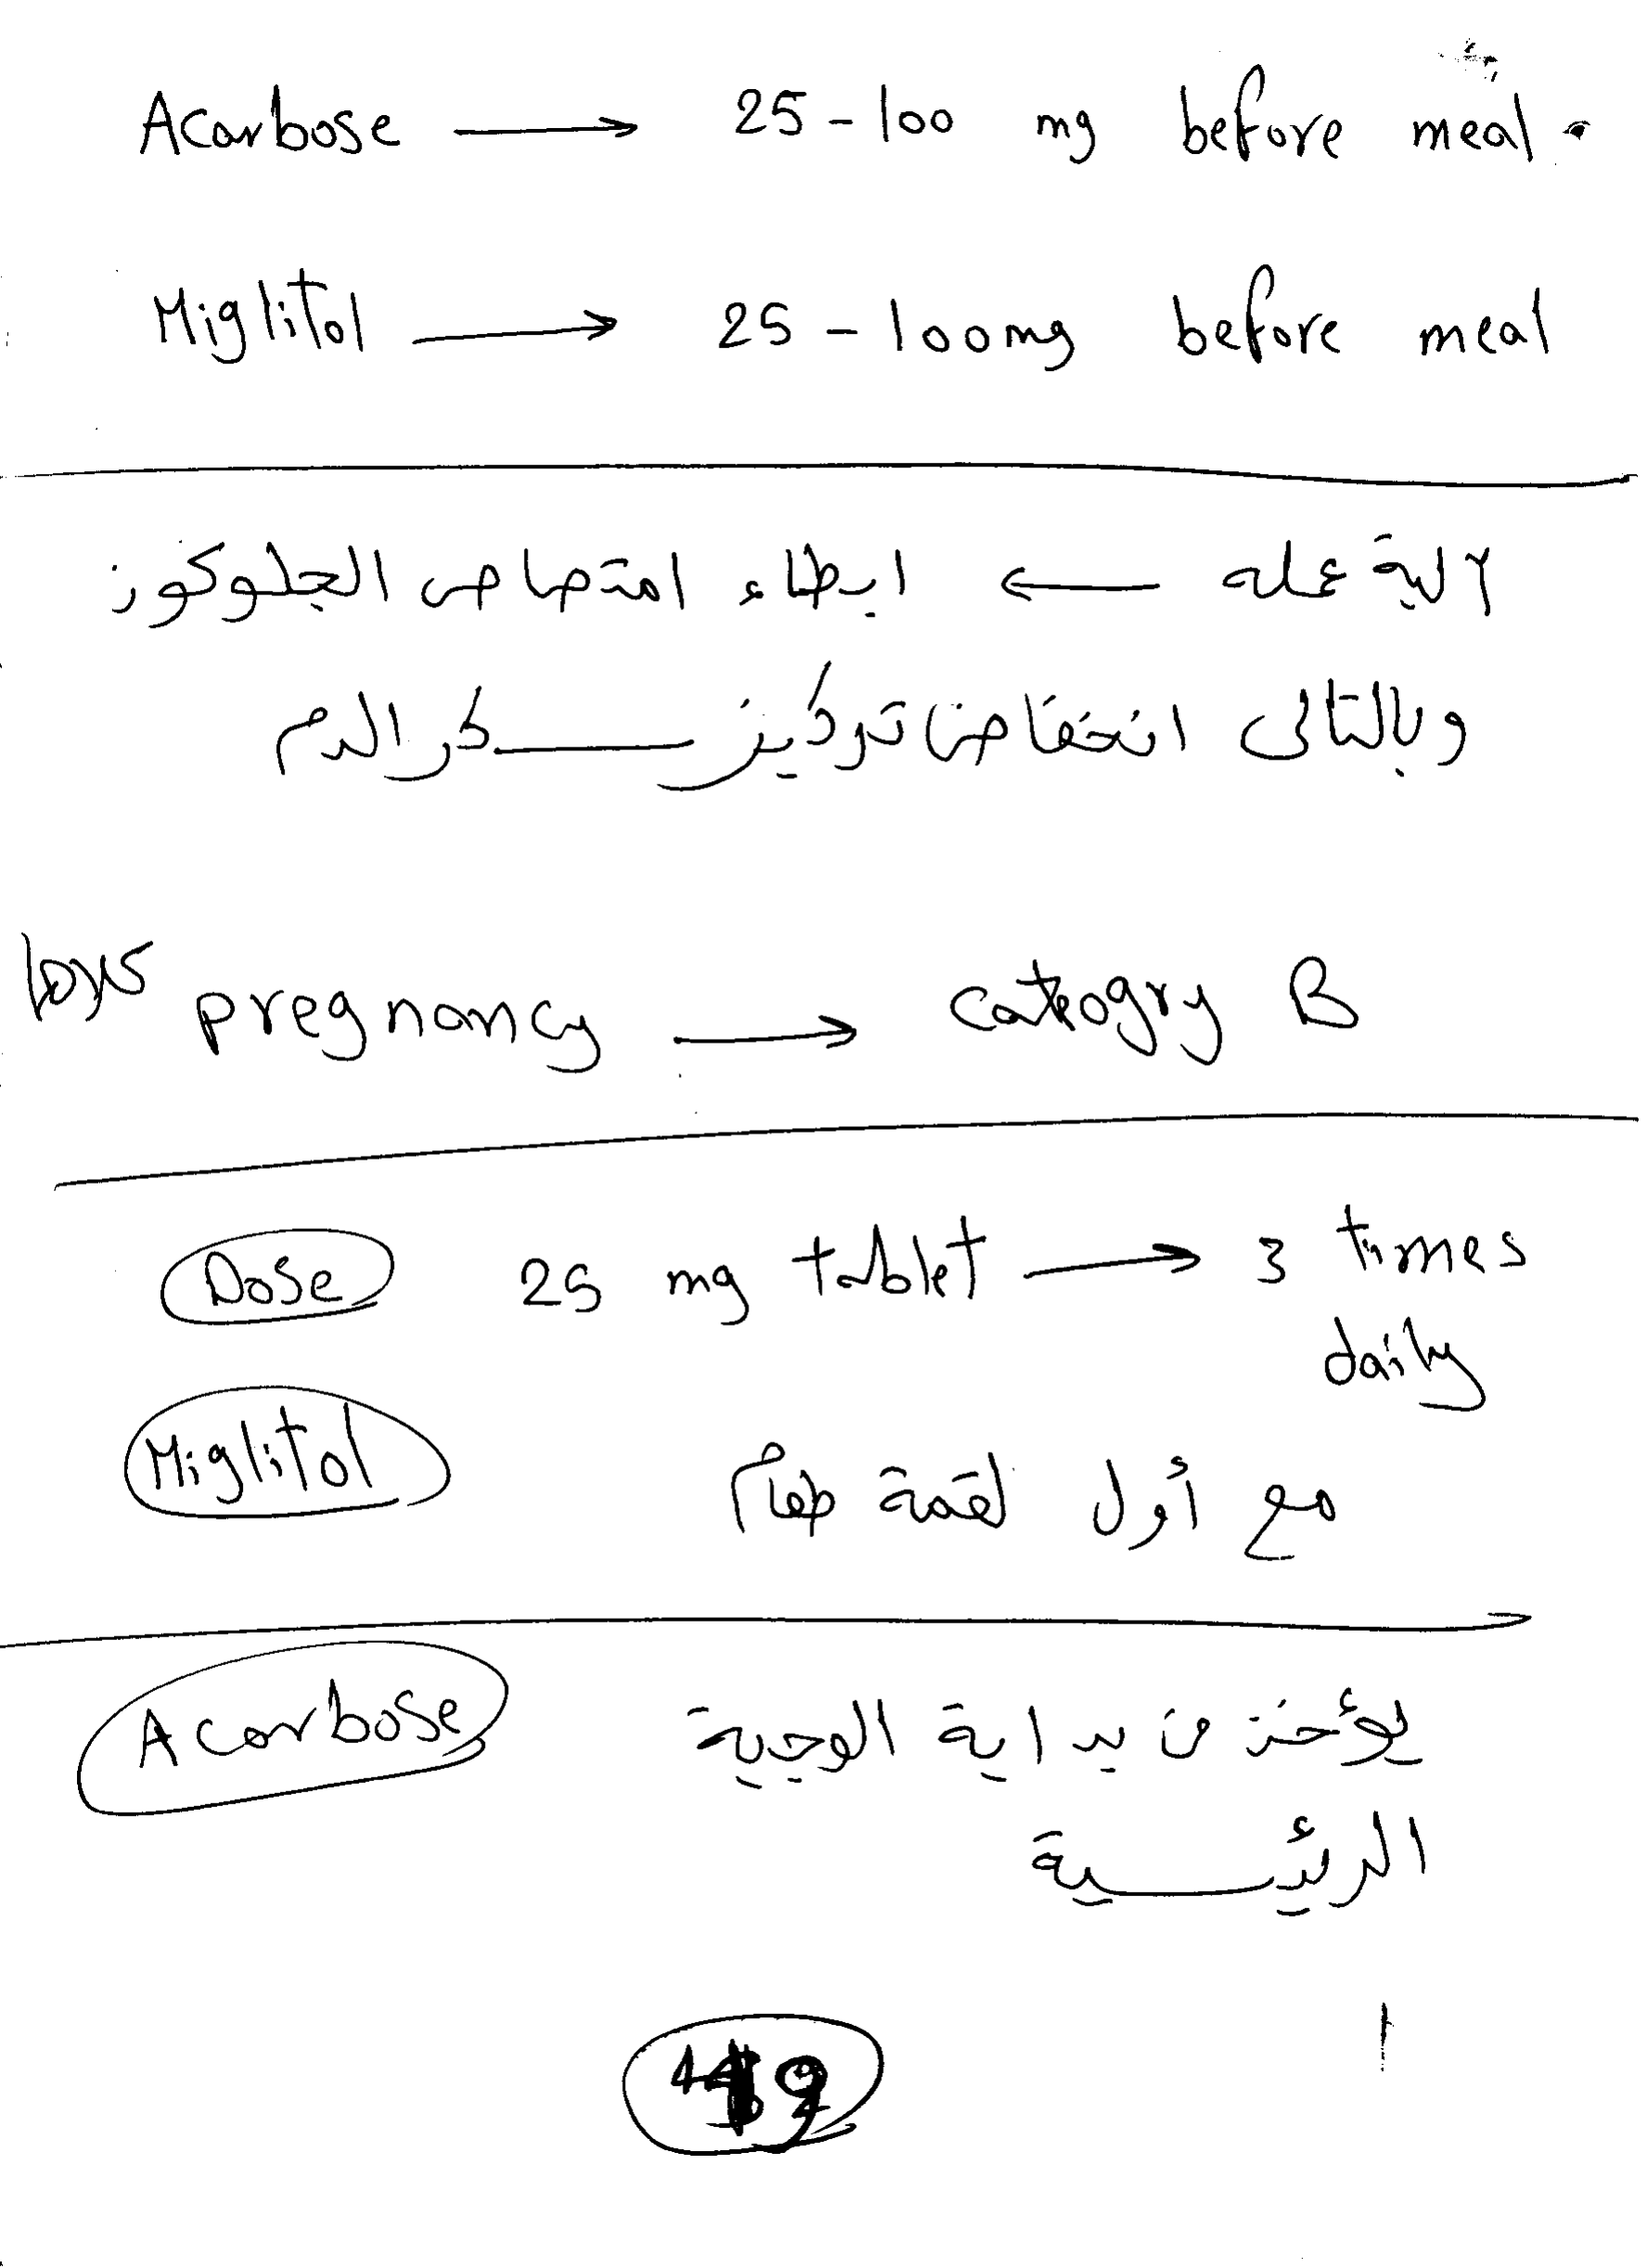 Acarbose → 25 - 100 mg before meal.
Miglitol → 25 - 100mg before meal
آلية عمله ← ابطاء امتصاص الجلوكوز
وبالتالى انخفاض تركيز سكر الدم
pregnancy → cateogry B
Dose 25 mg tablet → 3 times
daily
Miglitol مع أول لقمة طعام
Acarbose يؤخذ من بداية الوجبة
الرئيسية